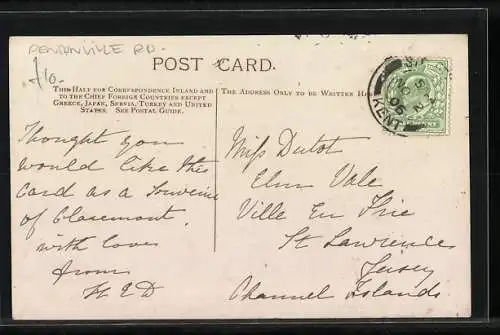 PENTONVILLE RD.
£10.
POST CARD.
THIS HALF FOR CORRESPONDENCE INLAND AND
TO THE CHIEF FOREIGN COUNTRIES EXCEPT
GREECE, JAPAN, SERVIA, TURKEY AND UNITED
STATES. SEE POSTAL GUIDE.
THE ADDRESS ONLY TO BE WRITTEN HERE
KENT
Thought you
would like this
card as a Souvenir
of Claremont.
with love
from
H E D
Miss Dutot
Elm Vale
Ville En Prie
St Lawrence
Jersey
Channel Islands